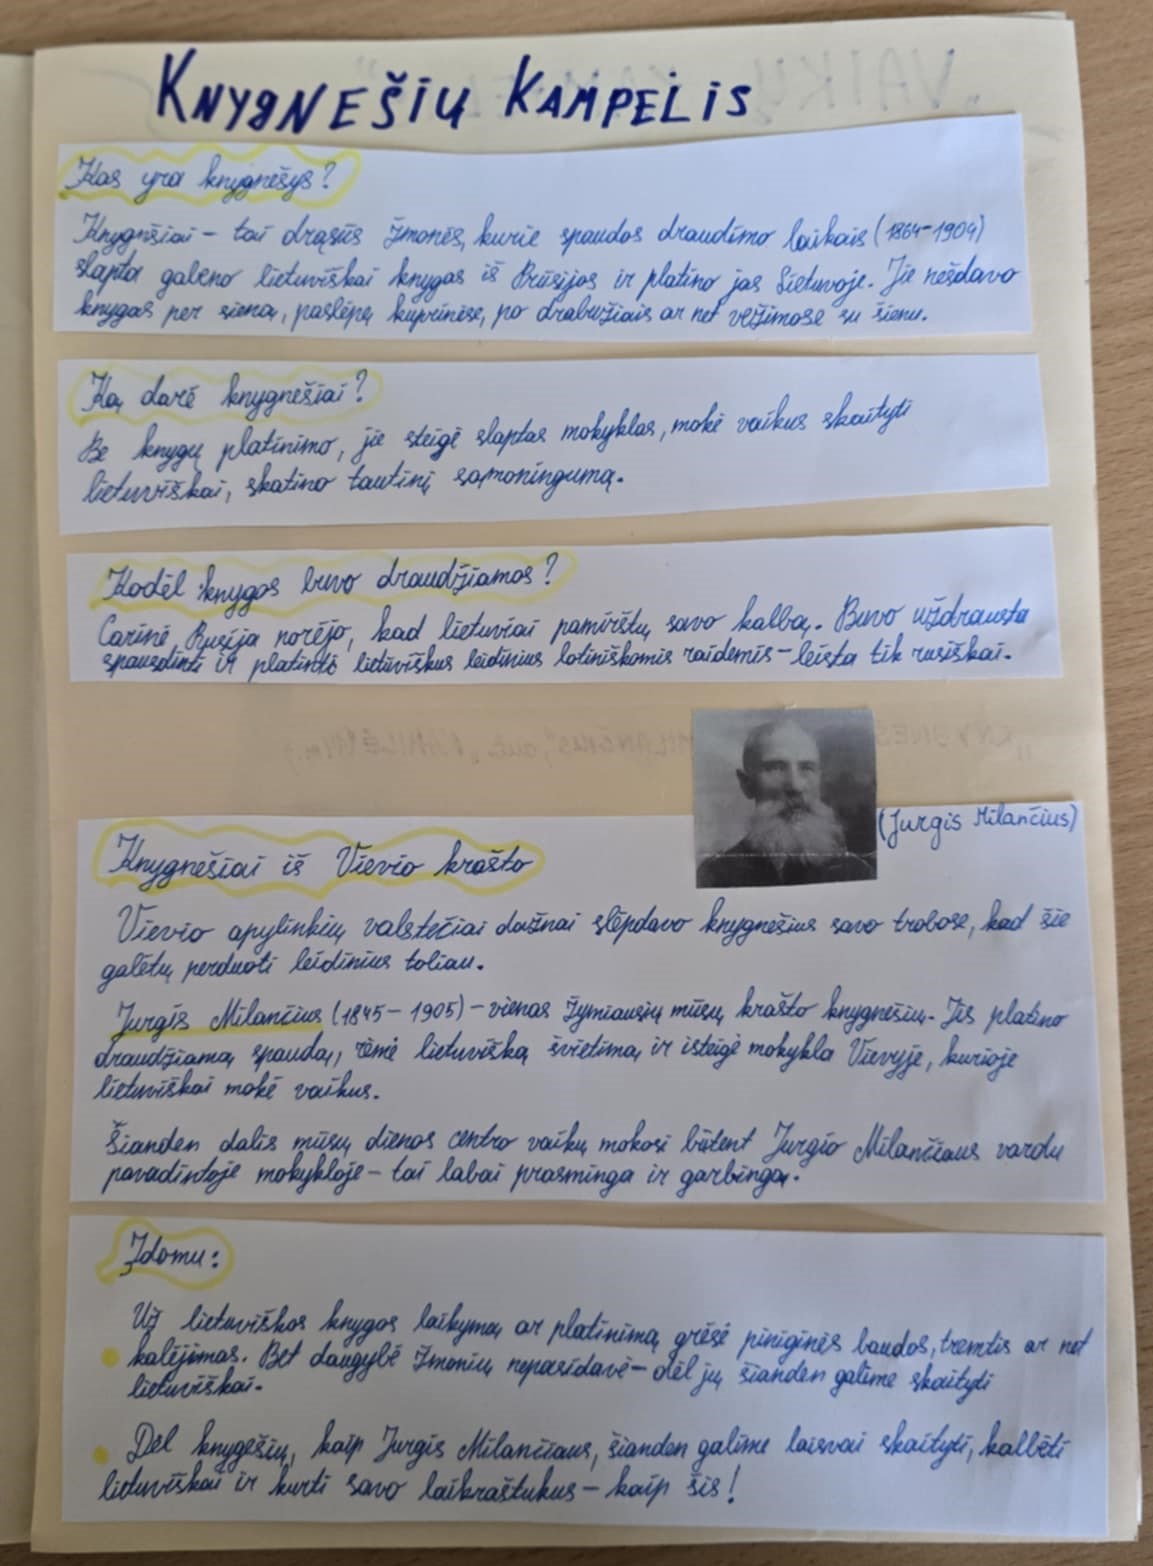 KNYGNEŠIŲ KAMPELIS
Kas yra knygnešys?
Knygnšiai – tai drąsūs žmonės, kurie spaudos draudimo laikais (1864–1904)
slapta gabeno lietuviškai knygas iš Prūsijos ir platino jas Lietuvoje. Jie nešdavo
knygas per sieną, paslėpę kuprinėse, po drabužiais ar net vežimose su šienu.
Ką darė knygnešiai?
Be knygų platinimo, jie steigė slaptas mokyklas, mokė vaikus skaityti
lietuviškai, skatino tautinį sąmoningumą.
Kodėl knygos buvo draudžiamos?
Carinė Rusija norėjo, kad lietuviai pamirštų savo kalbą. Buvo uždrausta
spausdinti ir platinti lietuviškus leidinius lotiniškomis raidėmis – leista tik rusiškai.
(Jurgis Milančius)
Knygnešiai iš Vievio krašto
Vievio apylinkių valstečiai dažnai slėpdavo knygnešius savo trobose, kad šie
galėtų perduoti leidinius toliau.
Jurgis Milančius (1845–1905) – vienas žymiausių mūsų krašto knygnešių. Jis platino
draudžiamą spaudą, rėmė lietuvišką švietimą ir isteigė mokykla Vievyje, kurioje
lietuviškai mokė vaikus.
Šianden dalis mūsų dienos centro vaikų mokosi būtent Jurgio Milančiaus vardu
pavadintoje mokykloje – tai labai prasminga ir garbinga.
Įdomu:
Už lietuviškos knygos laikymą ar platinimą grėsė piniginės baudos, tremtis ar net
kalėjimas. Bet daugybė žmonių nepasidavė – dėl jų šianden galime skaityti
lietuviškai.
Dėl knygešių, kaip Jurgis Milančiaus, šianden galime laisvai skaityti, kalbėti
lietuviškai ir kurti savo laikraštukus – kaip šis!